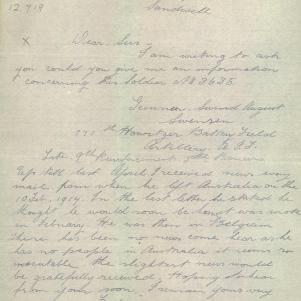 12.7.19
Sandwell
x Dear Sirs
I am writing to ask
you could you give me an information
concerning this Soldier No 33635.
Gunner Svend August
Svensen
Howitzer Battery Field
Artillery A.I.F.
Late 9th Reinforcement
Up till last April I received news every
mail from when he left Australia on the
10 Feb. 1917. In the last letter he stated he
thought he would soon be home it was wrote
in February He was then in Belgium
there has been no news come dear as he
has no people in Australia it seems so
the slightest news would
be gratefully received, Hoping to hear
from your soon, I remain yours very